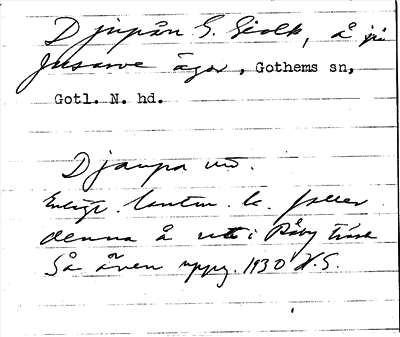 Djupån G. Geolk, å på
Jusarve ägor, Gothems sn,
Gotl. N. hd.
Djaupa un.
Enligt lantm. k. faller
denna å ut i Råby träsk
Så även uppg. 1930 H.S.